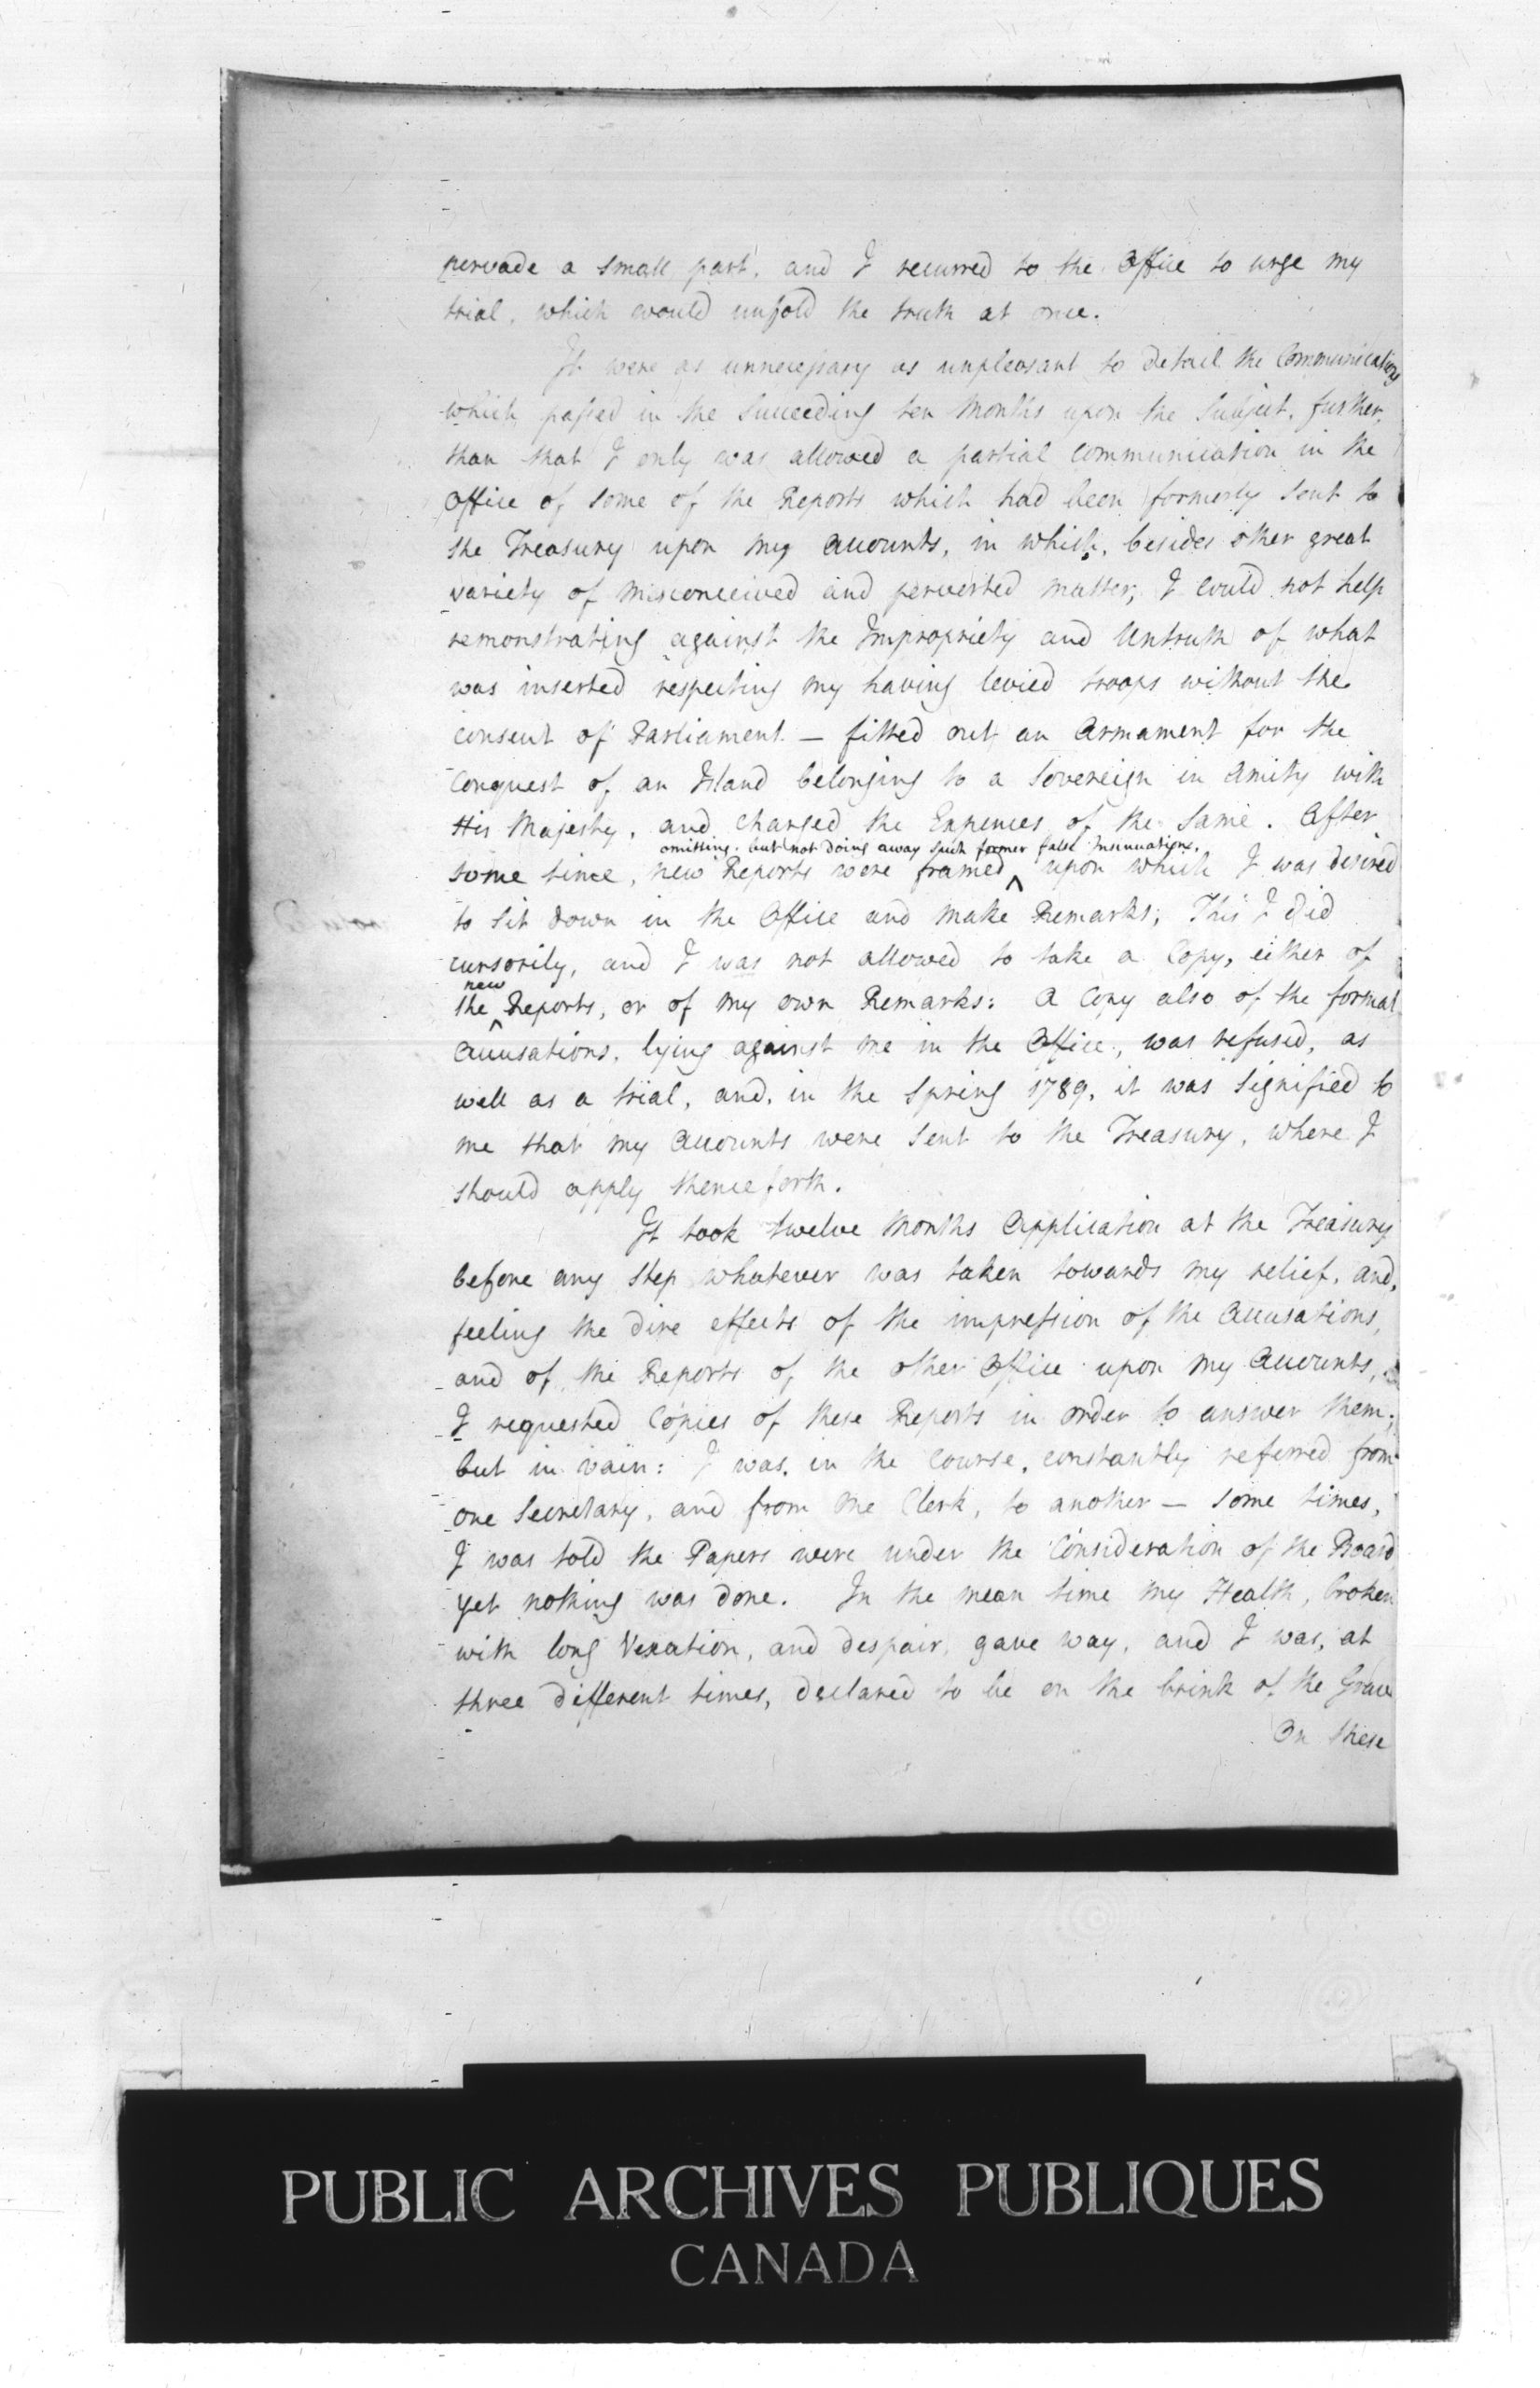 pervade a small part, and I recurred to the Office to urge my
trial, which would unfold the truth at once.
It were as unnecessary as unpleasant to detail the Communications
which passed in the Succeeding ten Months upon the Subject, further,
than that I only was allowed a partial communication in the
Office of some of the Reports which had been formerly sent to
the Treasury upon my Accounts, in which, besides other great
variety of misconceived and perverted matter, I could not help
remonstrating against the Impropriety and Untruth of what
was inserted respecting my having levied troops without the
consent of Parliament — fitted out an Armament for the
Conquest of an Island belonging to a Sovereign in Amity with
His Majesty, and charged the Expences of the Same. After
omitting, but not doing away such former false insinuations,
some time, new Reports were framed ^ upon which I was desired
to sit down in the Office and make Remarks; This I did
cursorily, and I was not allowed to take a Copy, either of
new
the ^ Reports, or of my own Remarks: A Copy also of the formal
Accusations, lying against me in the Office, was refused, as
well as a trial, and, in the Spring 1789, it was signified to
me that my Accounts were sent to the Treasury, where I
should apply thenceforth.
It took twelve Months Application at the Treasury
before any step whatever was taken towards my relief, and,
feeling the dire effects of the impression of the Accusations,
and of the Reports of the other Office upon my Accounts,
I requested Copies of these Reports in order to answer them;
but in vain: I was, in the course, constantly referred from
one Secretary, and from one Clerk, to another — some times,
I was told the Papers were under the Consideration of the Board
yet nothing was done. In the mean time my Health, broken
with long Vexation, and despair, gave way, and I was, at
three different times, declared to be on the brink of the Grave
On these
PUBLIC ARCHIVES PUBLIQUES
CANADA